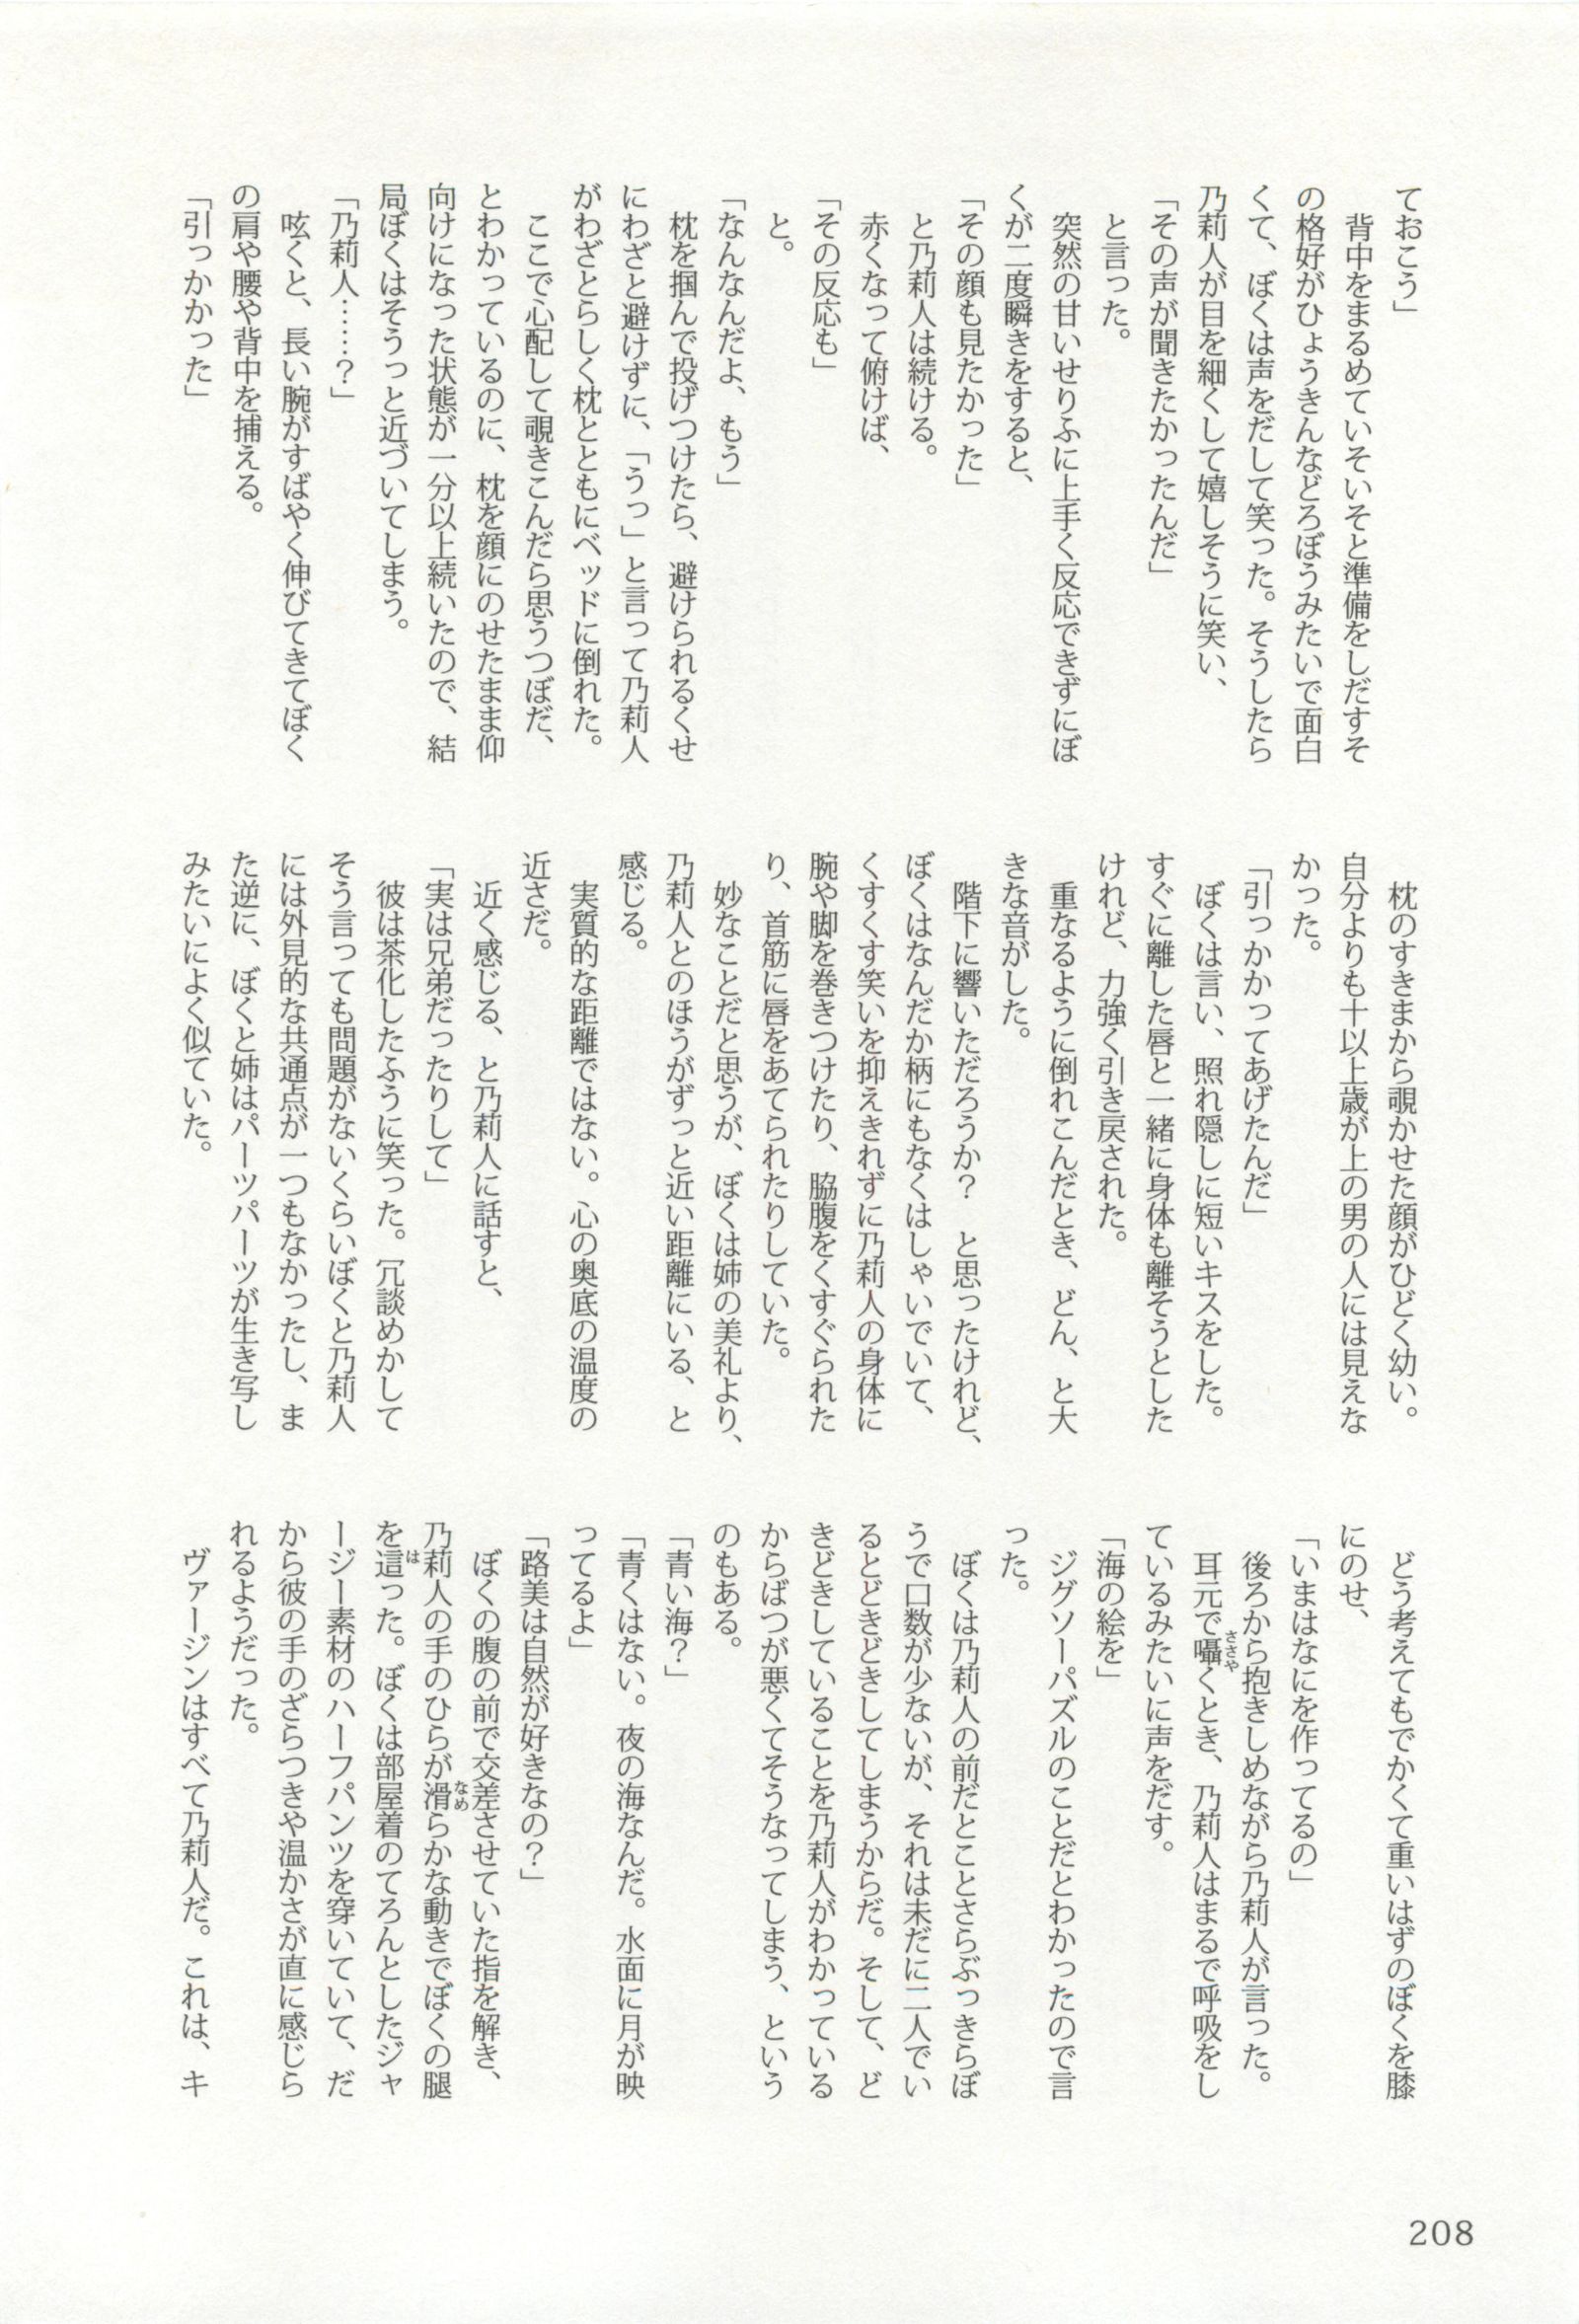 ておこう」
　背中をまるめていそいそと準備をしだすそ
の格好がひょうきんなどろぼうみたいで面白
くて、ぼくは声をだして笑った。そうしたら
乃莉人が目を細くして嬉しそうに笑い、
「その声が聞きたかったんだ」
　と言った。
　突然の甘いせりふに上手く反応できずにぼ
くが二度瞬きをすると、
「その顔も見たかった」
　と乃莉人は続ける。
　赤くなって俯けば、
「その反応も」
　と。
「なんなんだよ、もう」
　枕を掴んで投げつけたら、避けられるくせ
にわざと避けずに、「うっ」と言って乃莉人
がわざとらしく枕とともにベッドに倒れた。
　ここで心配して覗きこんだら思うつぼだ、
とわかっているのに、枕を顔にのせたまま仰
向けになった状態が一分以上続いたので、結
局ぼくはそうっと近づいてしまう。
「乃莉人……？」
　呟くと、長い腕がすばやく伸びてきてぼく
の肩や腰や背中を捕える。
「引っかかった」
　枕のすきまから覗かせた顔がひどく幼い。
自分よりも十以上歳が上の男の人には見えな
かった。
「引っかかってあげたんだ」
　ぼくは言い、照れ隠しに短いキスをした。
すぐに離した唇と一緒に身体も離そうとした
けれど、力強く引き戻された。
　重なるように倒れこんだとき、どん、と大
きな音がした。
　階下に響いただろうか？　と思ったけれど、
ぼくはなんだか柄にもなくはしゃいでいて、
くすくす笑いを抑えきれずに乃莉人の身体に
腕や脚を巻きつけたり、脇腹をくすぐられた
り、首筋に唇をあてられたりしていた。
　妙なことだと思うが、ぼくは姉の美礼より、
乃莉人とのほうがずっと近い距離にいる、と
感じる。
　実質的な距離ではない。心の奥底の温度の
近さだ。
　近く感じる、と乃莉人に話すと、
「実は兄弟だったりして」
　彼は茶化したふうに笑った。冗談めかして
そう言っても問題がないくらいぼくと乃莉人
には外見的な共通点が一つもなかったし、ま
た逆に、ぼくと姉はパーツパーツが生き写し
みたいによく似ていた。
　どう考えてもでかくて重いはずのぼくを膝
にのせ、
「いまはなにを作ってるの」
　後ろから抱きしめながら乃莉人が言った。
　耳元で囁くとき、乃莉人はまるで呼吸をし
ているみたいに声をだす。
「海の絵を」
　ジグソーパズルのことだとわかったので言
った。
　ぼくは乃莉人の前だとことさらぶっきらぼ
うで口数が少ないが、それは未だに二人でい
るとどきどきしてしまうからだ。そして、ど
きどきしていることを乃莉人がわかっている
からばつが悪くてそうなってしまう、という
のもある。
「青い海？」
「青くはない。夜の海なんだ。水面に月が映
ってるよ」
「路美は自然が好きなの？」
　ぼくの腹の前で交差させていた指を解き、
乃莉人の手のひらが滑らかな動きでぼくの腿
を這った。ぼくは部屋着のてろんとしたジャ
ージー素材のハーフパンツを穿いていて、だ
から彼の手のざらつきや温かさが直に感じら
れるようだった。
　ヴァージンはすべて乃莉人だ。これは、キ
208